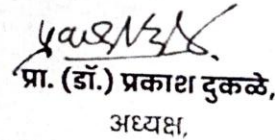 प्रा. (डॉ.) प्रकाश दुकळे,
अध्यक्ष,